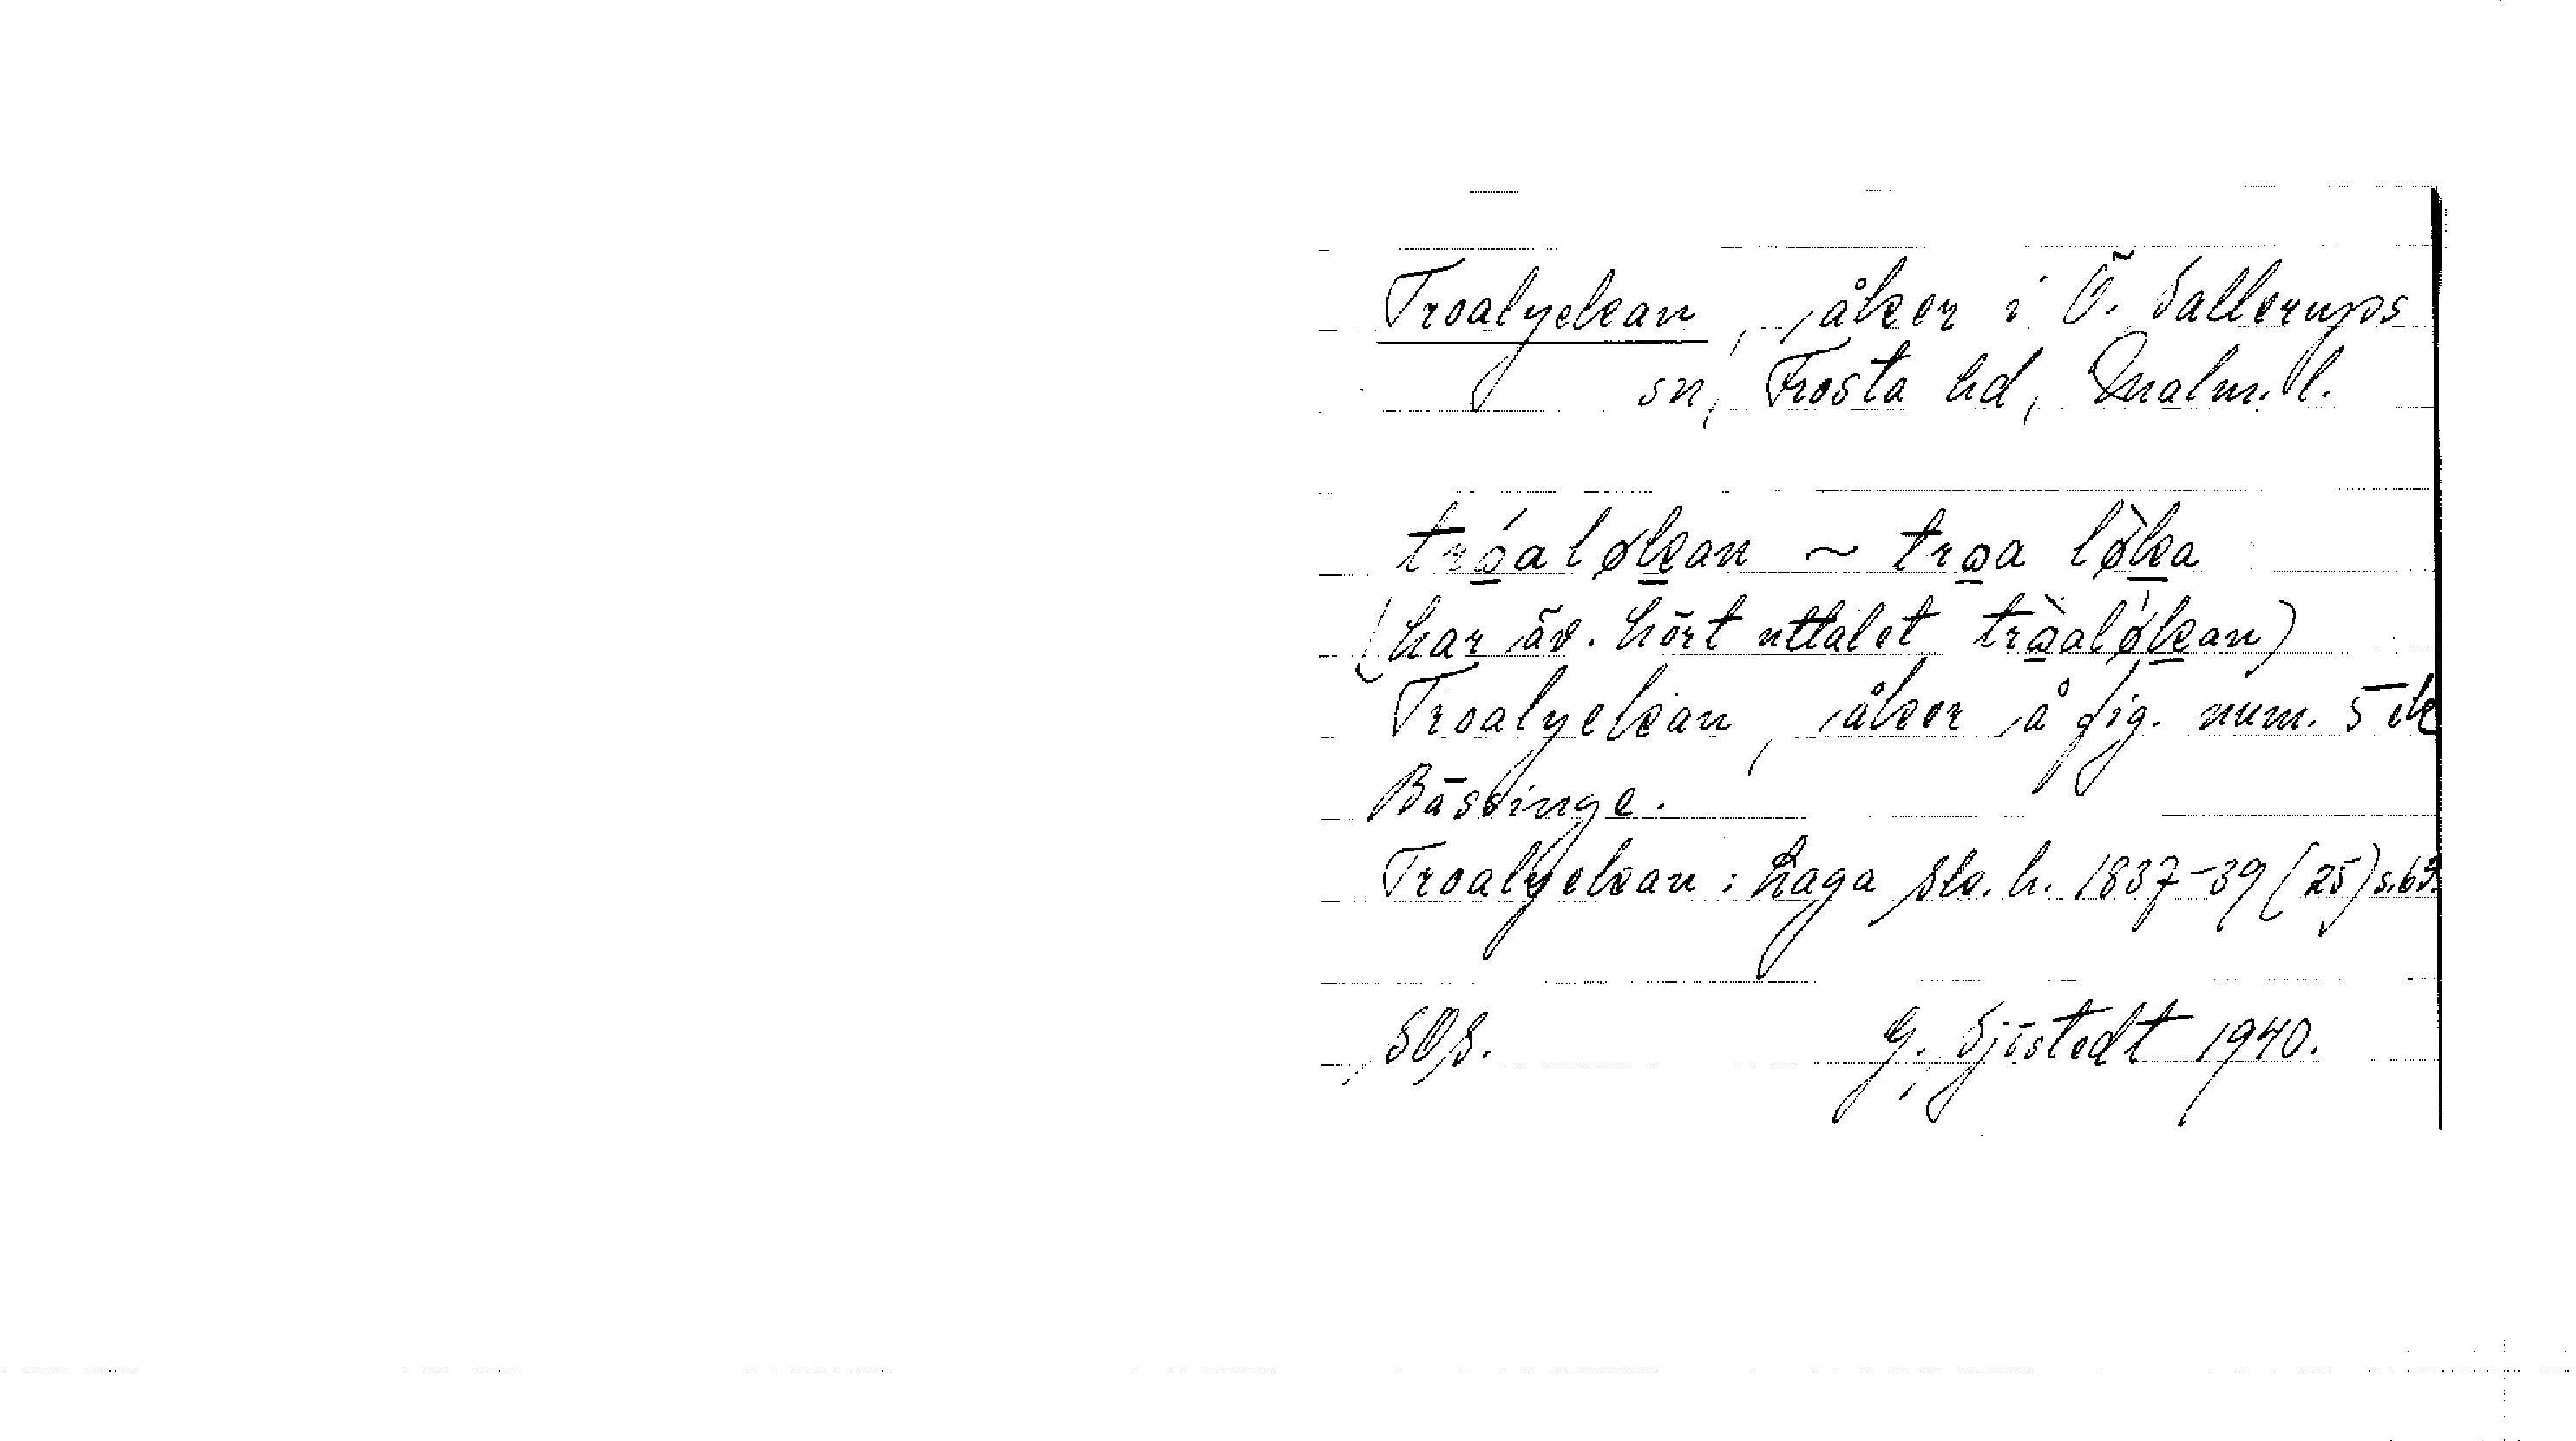 Troalyckan, åker i Ö. Sallerups
sn, Frosta hd, Malm. l.
tróaløkan ~ troa lø̀ka
(har äv. hört uttalet tròaløkan)
Troalyckan, åker å fig. num. 5
Bässinge.
Troalyckan: Laga sk. h. 1837-39 (25) s. 63.
SOS. G. Sjöstedt 1940.